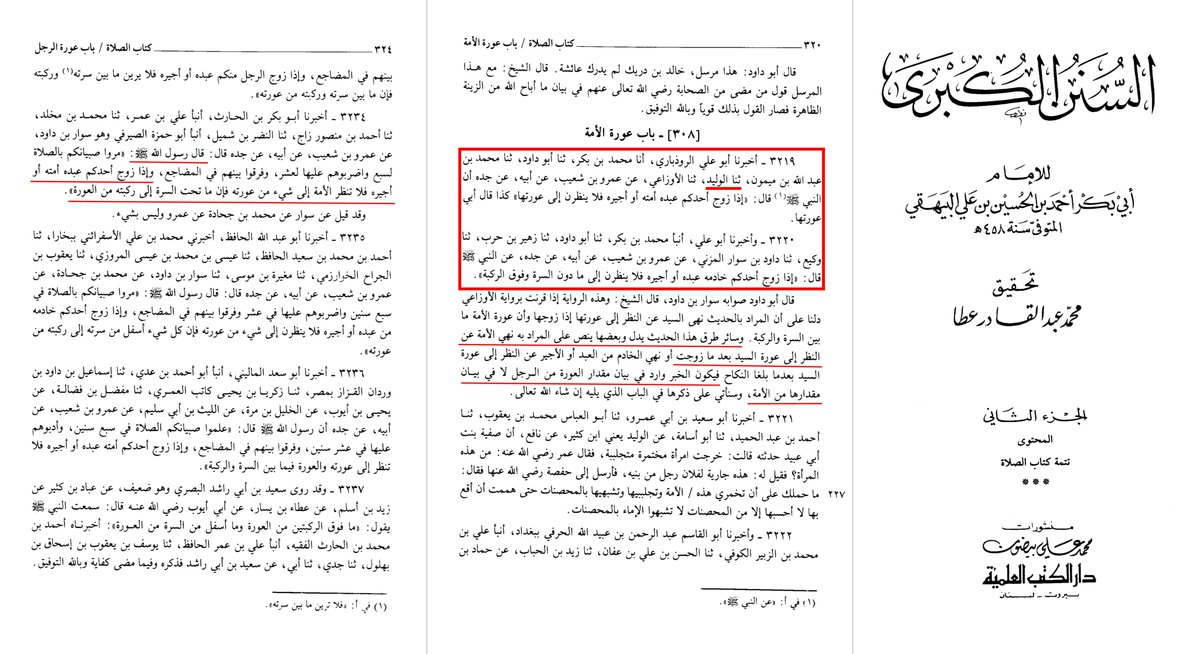 السنن الكبرى
للإمام
أبي بكر أحمد بن الحسين بن علي البيهقي
المتوفى سنة ٤٥٨ هـ
تحقيق
محمد عبد القادر عطا
الجزء الثاني
المحتوى
تتمة كتاب الصلاة
***
منشورات
محمد علي بيضون
دار الكتب العلمية
بيروت - لبنان
٣٢٠ كتاب الصلاة / باب عورة الأمة
قال أبو داود: هذا مرسل، خالد بن دريك لم يدرك عائشة. قال الشيخ: مع هذا
المرسل قول من مضى من الصحابة رضي الله تعالى عنهم في بيان ما أباح الله من الزينة
الظاهرة فصار القول بذلك قوياً وبالله التوفيق.
[٣٠٨] ـ باب عورة الأمة
٣٢١٩ ـ أخبرنا أبو علي الروذباري، أنا محمد بن بكر، ثنا أبو داود، ثنا محمد بن
عبد الله بن ميمون، ثنا الوليد، ثنا الأوزاعي، عن عمرو بن شعيب، عن أبيه، عن جده أن
النبي ﷺ(١) قال: «إذا زوج أحدكم عبده أمته أو أجيره فلا ينظرن إلى عورتها» كذا قال أبي
عورتها.
٣٢٢٠ ـ وأخبرنا أبو علي، أنبأ محمد بن بكر، ثنا أبو داود، ثنا زهير بن حرب، ثنا
وكيع، ثنا داود بن سوار المزني، عن عمرو بن شعيب، عن أبيه، عن جده، عن النبي ﷺ
قال: «إذا زوج أحدكم خادمه عبده أو أجيره فلا ينظرن إلى ما دون السرة وفوق الركبة».
قال أبو داود صوابه سوار بن داود، قال الشيخ: وهذه الرواية إذا قرنت برواية الأوزاعي
دلنا على أن المراد بالحديث نهي السيد عن النظر إلى عورتها إذا زوجها وأن عورة الأمة ما
بين السرة والركبة. وسائر طرق هذا الحديث يدل وبعضها ينص على المراد به نهي الأمة عن
النظر إلى عورة السيد بعد ما زوجت أو نهي الخادم من العبد أو الأجير عن النظر إلى عورة
السيد بعدما بلغا النكاح فيكون الخبر وارد في بيان مقدار العورة من الرجل لا في بيان
مقدارها من الأمة، وسنأتي على ذكرها في الباب الذي يليه إن شاء الله تعالى.
٣٢٢١ ـ أخبرنا أبو سعيد بن أبي عمرو، ثنا أبو العباس محمد بن يعقوب، ثنا
أحمد بن عبد الحميد، ثنا أبو أسامة، عن الوليد يعني ابن كثير، عن نافع، أن صفية بنت
أبي عبيد حدثته قالت: خرجت امرأة مختمرة متجلببة، فقال عمر رضي الله عنه: من هذه
المرأة؟ فقيل له: هذه جارية لفلان رجل من بنيه، فأرسل إلى حفصة رضي الله عنها فقال:
٢٢٧ ما حملك على أن تخمري هذه / الأمة وتجلببيها وتشبهيها بالمحصنات حتى هممت أن أقع
بها لا أحسبها إلا من المحصنات لا تشبهوا الإماء بالمحصنات.
٣٢٢٢ ـ وأخبرنا أبو القاسم عبد الرحمن بن عبيد الله الحرفي ببغداد، أنبأ علي بن
محمد بن الزبير الكوفي، ثنا الحسن بن علي بن عفان، ثنا زيد بن الحباب، عن حماد بن
(١) في أ: «عن النبي ﷺ».
٣٢٤ كتاب الصلاة / باب عورة الرجل
بينهم في المضاجع، وإذا زوج الرجل منكم عبده أو أجيره فلا يرين ما بين سرته(١) وركبته
فإن ما بين سرته وركبته من عورته».
٣٢٣٤ ـ أخبرنا أبو بكر بن الحارث، أنبأ علي بن عمر، ثنا محمد بن مخلد،
ثنا أحمد بن منصور زاج، ثنا النضر بن شميل، أنبأ أبو حمزة الصيرفي وهو سوار بن داود،
عن عمرو بن شعيب، عن أبيه، عن جده قال: قال رسول الله ﷺ: «مروا صبيانكم بالصلاة
لسبع واضربوهم عليها لعشر، وفرقوا بينهم في المضاجع، وإذا زوج أحدكم عبده أمته أو
أجيره فلا تنظر الأمة إلى شيء من عورته فإن ما تحت السرة إلى ركبته من العورة».
وقد قيل عن سوار عن محمد بن جحادة عن عمرو وليس بشيء.
٣٢٣٥ ـ أخبرنا أبو عبد الله الحافظ، أخبرني محمد بن علي الأسفرائني ببخارا، ثنا
أحمد بن محمد بن سعيد الحافظ، ثنا عيسى بن محمد بن عيسى المروزي، ثنا يعقوب بن
الجراح الخوارزمي، ثنا مغيرة بن موسى، ثنا سوار بن داود، عن محمد بن جحادة، عن
عمرو بن شعيب، عن أبيه، عن جده قال: قال رسول الله ﷺ: «مروا صبيانكم بالصلاة في
سبع سنين واضربوهم عليها في عشر وفرقوا بينهم في المضاجع، وإذا زوج أحدكم خادمه
من عبده أو أجيره فلا ينظرن إلى شيء من عورته فإن كل شيء أسفل من سرته إلى ركبته من
عورته».
٣٢٣٦ ـ أخبرنا أبو سعد الماليني، أنبأ أبو أحمد بن عدي، ثنا إسماعيل بن داود بن
وردان القزاز بمصر، ثنا زكريا بن يحيى كاتب العمري، ثنا مفضل بن فضالة، عن
يحيى بن أيوب، عن الخليل بن مرة، عن الليث بن أبي سليم، عن عمرو بن شعيب، عن
أبيه، عن جده أن رسول الله ﷺ قال: «علموا صبيانكم الصلاة في سبع سنين، وأدبوهم
عليها في عشر سنين، وفرقوا بينهم في المضاجع، وإذا زوج أحدكم أمته عبده أو أجيره فلا
تنظر إلى عورته والعورة فيما بين السرة والركبة».
٣٢٣٧ ـ وقد روى سعيد بن أبي راشد البصري وهو ضعيف، عن عباد بن كثير عن
زيد بن أسلم، عن عطاء بن يسار، عن أبي أيوب رضي الله عنه قال: سمعت النبي ﷺ
يقول: «ما فوق الركبتين من العورة وما أسفل من السرة من العورة»: أخبرناه أحمد بن
محمد بن الحارث الفقيه، أنبأ علي بن عمر الحافظ، ثنا يوسف بن يعقوب بن إسحاق بن
بهلول، ثنا جدي، ثنا أبي، عن سعيد بن أبي راشد فذكره وفيما مضى كفاية وبالله التوفيق.
(١) في أ: «فلا ترين ما بين سرته».